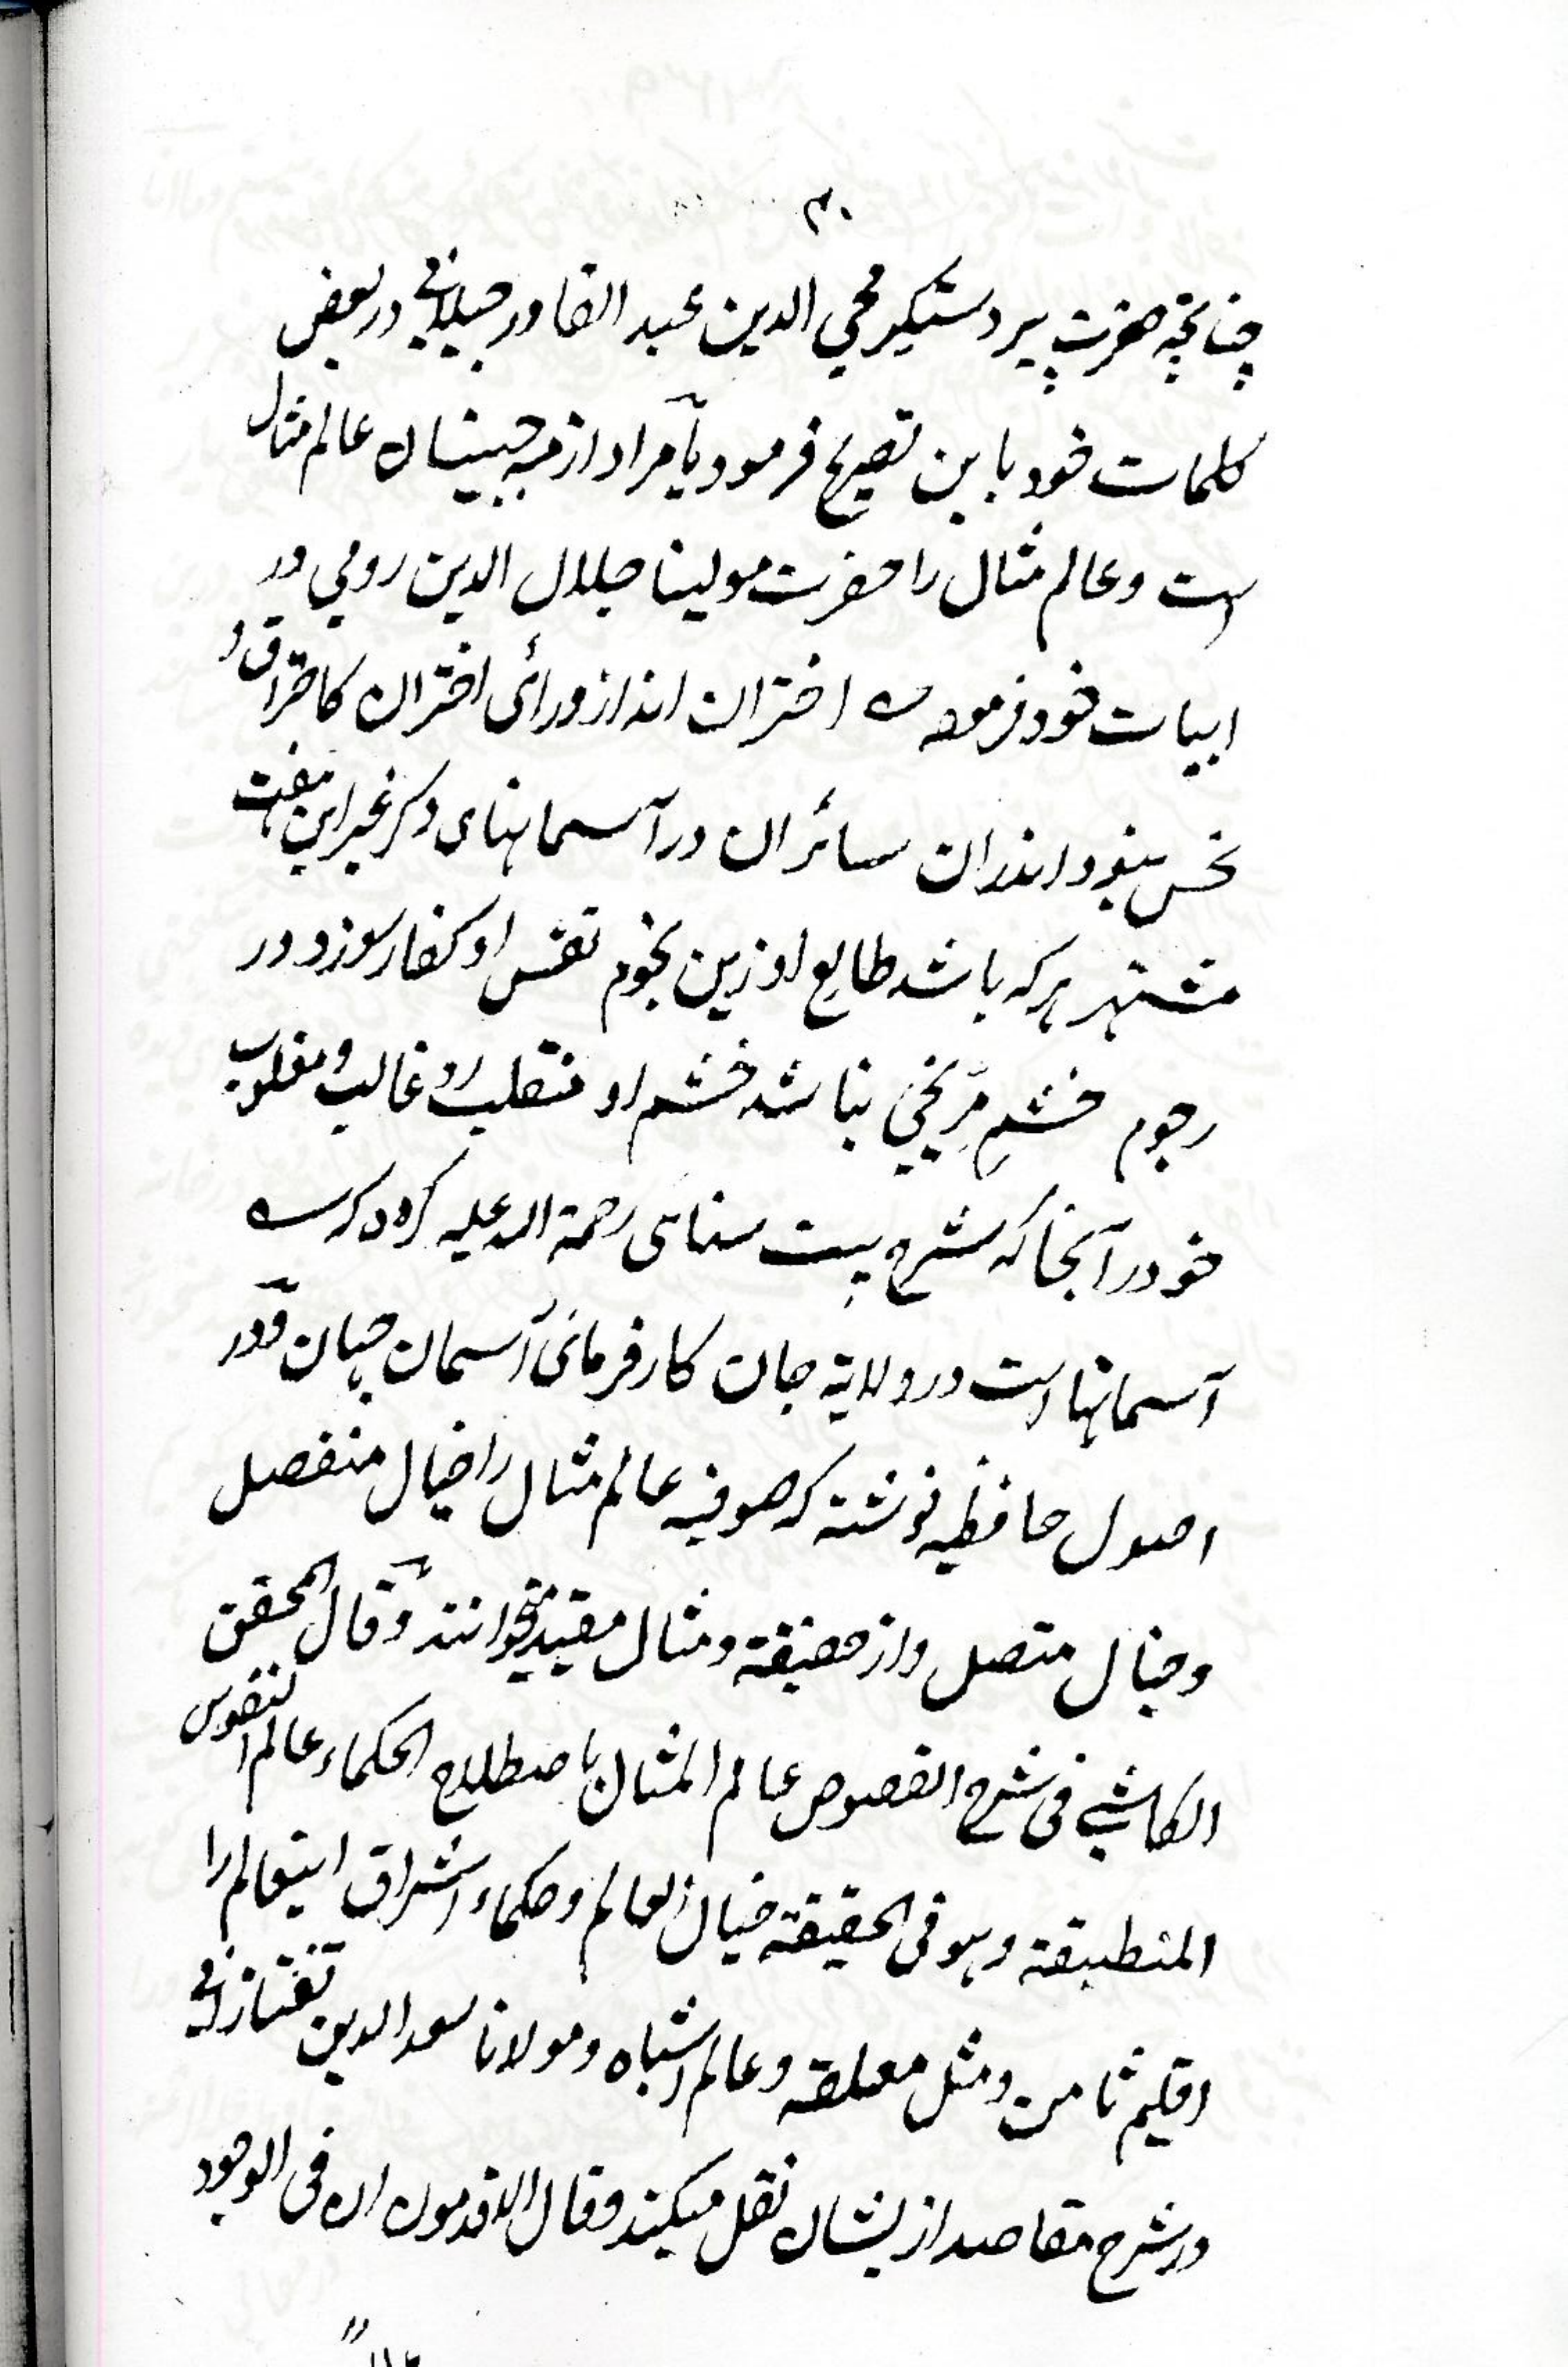 ۳۰
چنانچه حضرت پیر دستگیر محی الدین عبد القادر جیلانی در بعض
کلمات خود باین تصریح فرموده مراد از عالم مثال
است و عالم مثال را حضرت مولینا جلال الدین رومی در
ابیات خود فرموده اختران اند از ورائی اختران کاحتراق و
نحس نبود اندران سائران در آسمانهای دگر غیر این هفت
مشتهر هرکه باشد طالع او زین نجوم نفس او کفار سوزد در
رجوم خشم مریخی نباشد خشم او منقلب رو غالب و مغلوب
خو در آنجا که شرح بیت سنائی رحمة الله علیه کرده که
آسمانها است در ولایة جان کارفرمائی آسمان جهان و در
اصول حافظیه نوشته که صوفیه عالم مثال را خیال منفصل
و خیال متصل و ومثال مقید میخوانند وقال المحقق
الکاشی فی شرح الفصوص عالم المثال باصطلاح الحکماء عالم النفوس
المنطبقة وهو فی الحقیقة خیال العالم و حکماء اشراق اینعالم را
اقلیم ثامن و مثل معلقه و عالم اشباه و مولانا سعد الدین تفتازانی
در شرح مقاصد از یشان نقل میکند وقال الاقدمون ان فی الوجود